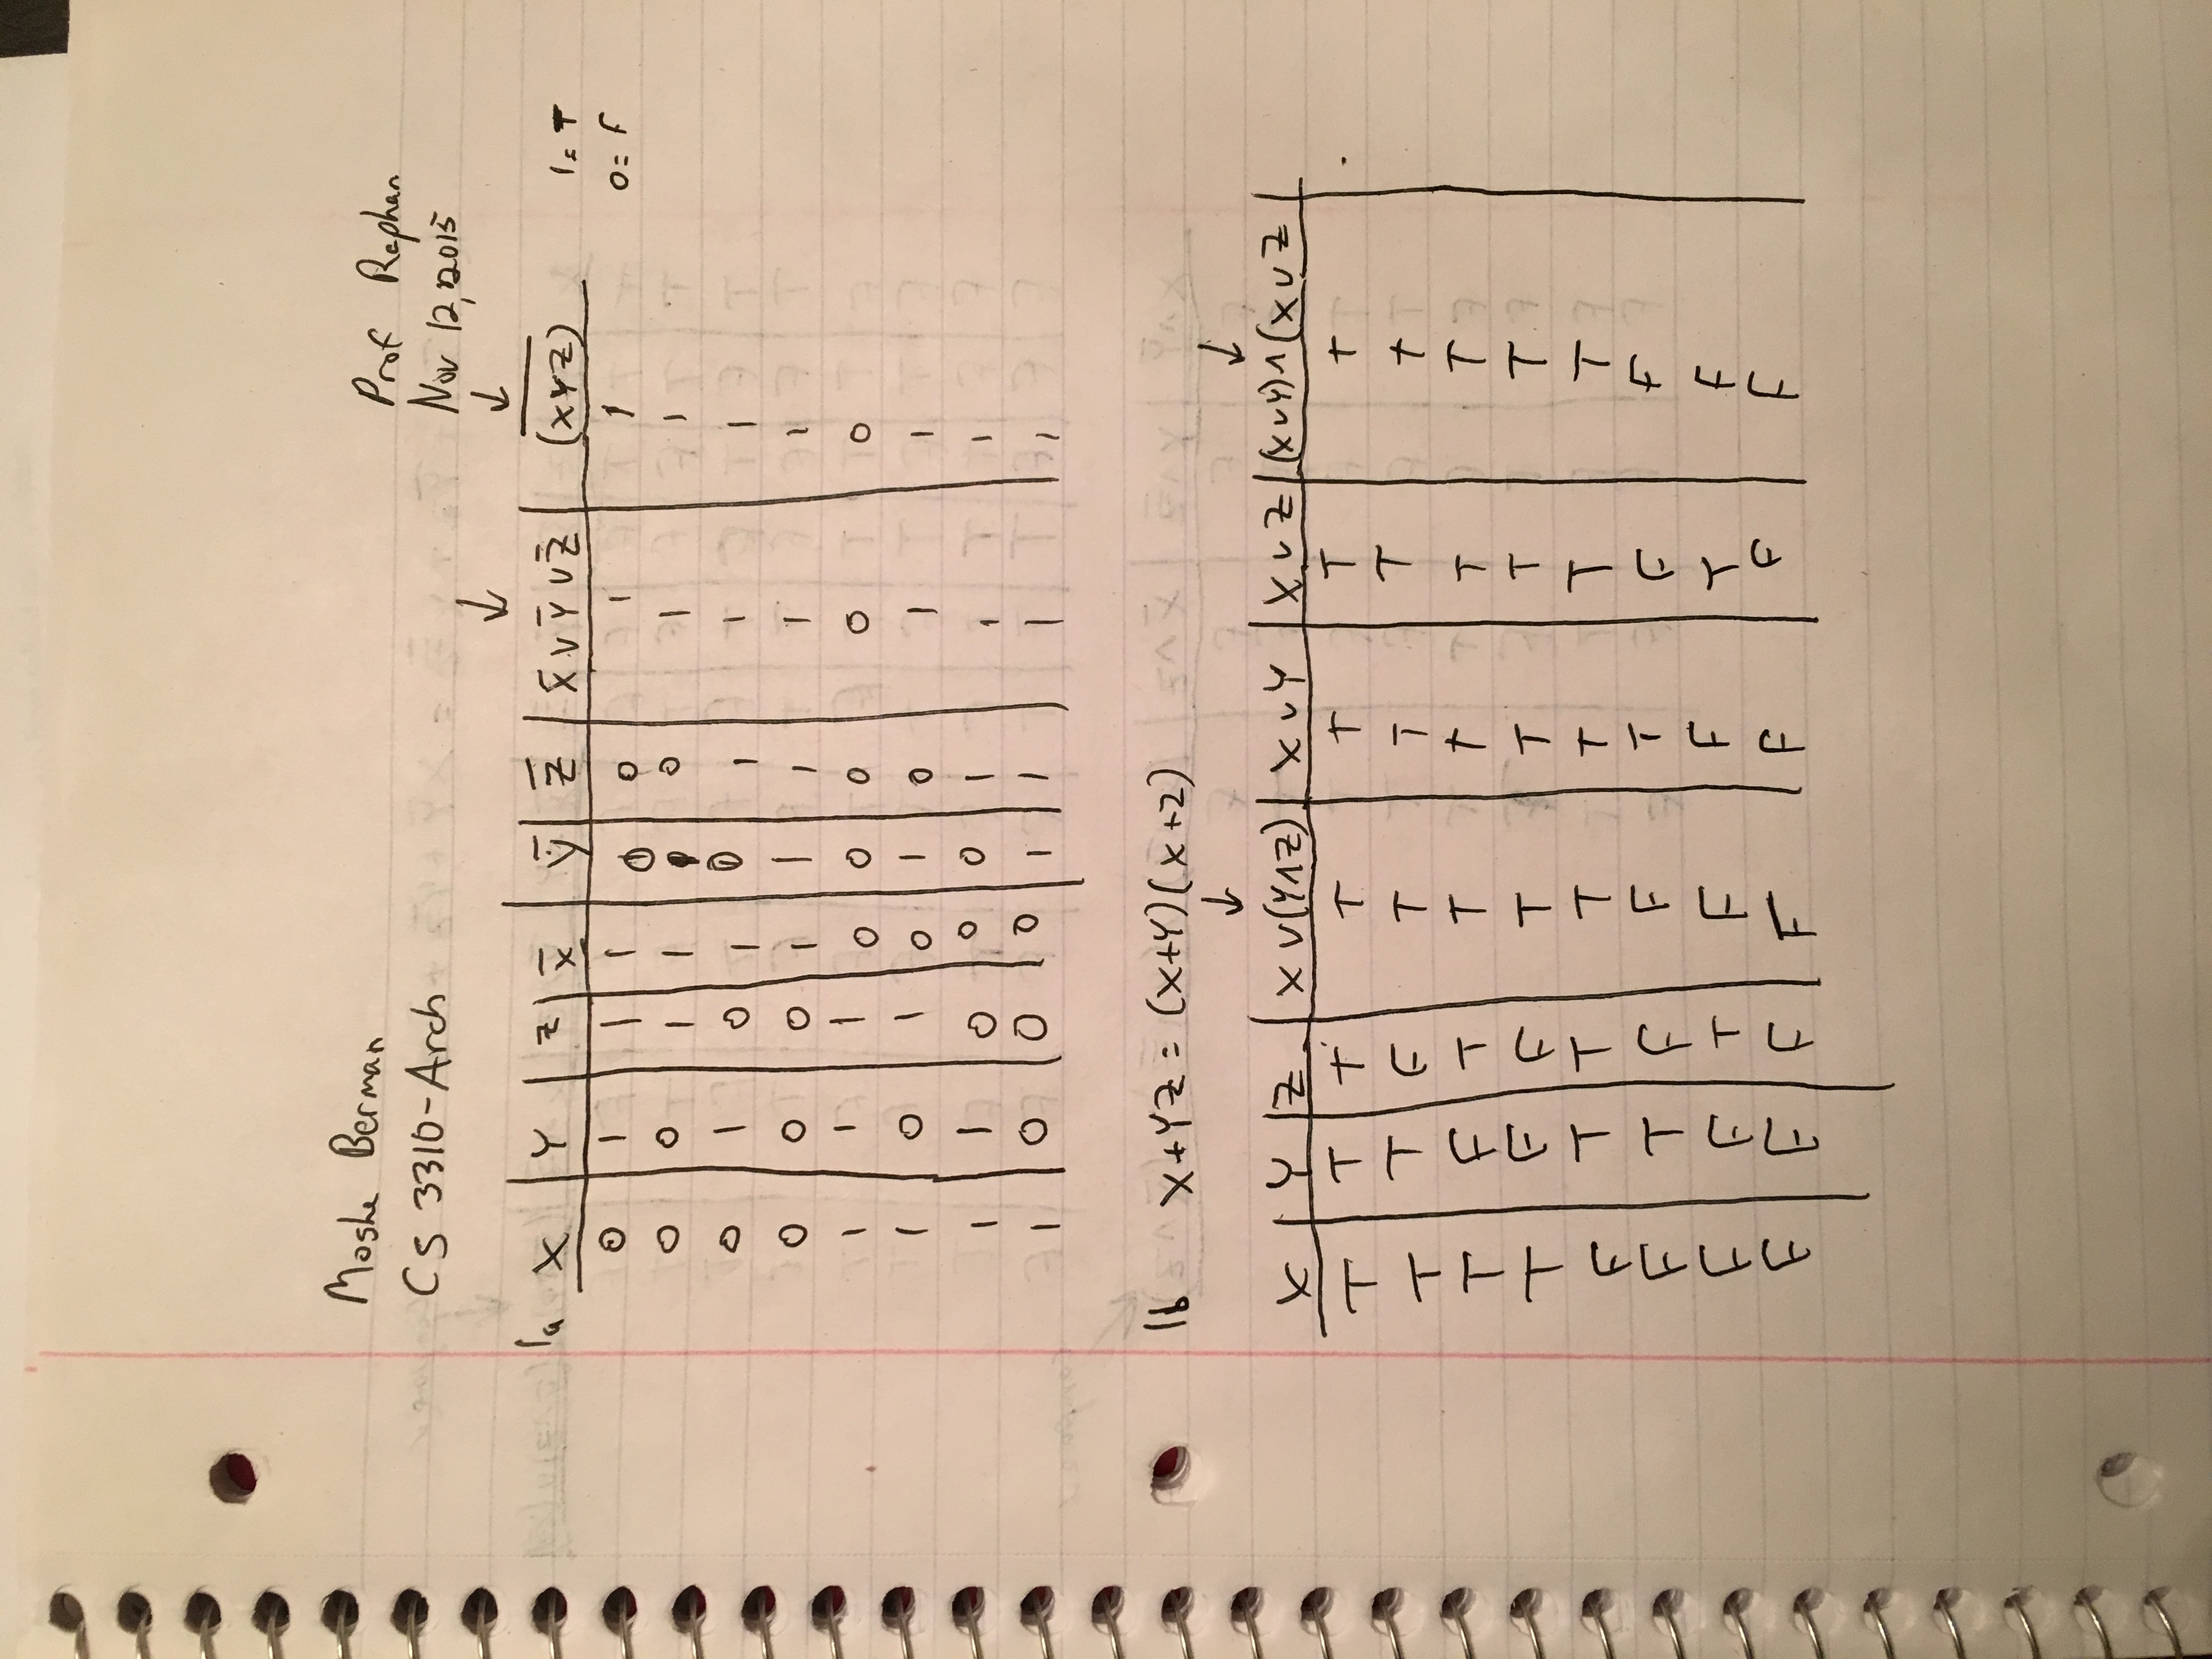 Moshe Berman Prof Raphan
CS 3310-Arch Nov 12, 2015
↓ ↓
1a X | Y | Z | X̄ | Ȳ | Z̄ | X̄ ∨ Ȳ ∨ Z̄ | (XYZ)̅ 1=T
0 | 1 | 1 | 1 | 0 | 0 | 1 | 1 0=F
0 | 0 | 1 | 1 | | 0 | 1 | 1
0 | 1 | 0 | 1 | 0 | 1 | 1 | 1
0 | 0 | 0 | 1 | 1 | 1 | 1 | 1
1 | 1 | 1 | 0 | 0 | 0 | 0 | 0
1 | 0 | 1 | 0 | 1 | 0 | 1 | 1
1 | 1 | 0 | 0 | 0 | 1 | 1 | 1
1 | 0 | 0 | 0 | 1 | 1 | 1 | 1
1b X+YZ = (X+Y)(X+Z)
↓ ↓
X | Y | Z | X ∨ (Y∧Z) | X ∨ Y | X ∨ Z | (X∨Y)∧(X∨Z
T | T | T | T | T | T | T
T | T | F | T | T | T | T
T | F | T | T | T | T | T
T | F | F | T | T | T | T
F | T | T | T | T | T | T
F | T | F | F | T | F | F
F | F | T | F | F | T | F
F | F | F | F | F | F | F